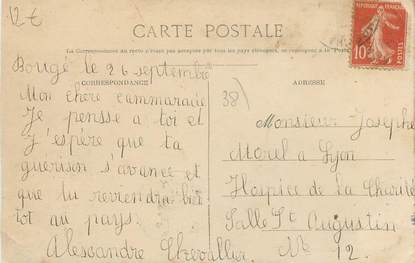 12 €
CARTE POSTALE
La Correspondance au recto n'est pas acceptée par tous les pays étrangers, se renseigner à la Poste
RÉPUBLIQUE FRANÇAISE
10
POSTES
Bougé le 26 septembre
CORRESPONDANCE
Mon chere cammarade
Je pensse a toi et
J'espère que ta
guerison s'avance et
que tu reviendra bien
tot au pays.
Alexandre Chevallier
38)
ADRESSE
Monsieur Josephe
Morel a Lyon
Hospice de la Charité
Salle St Augustin
No 12.